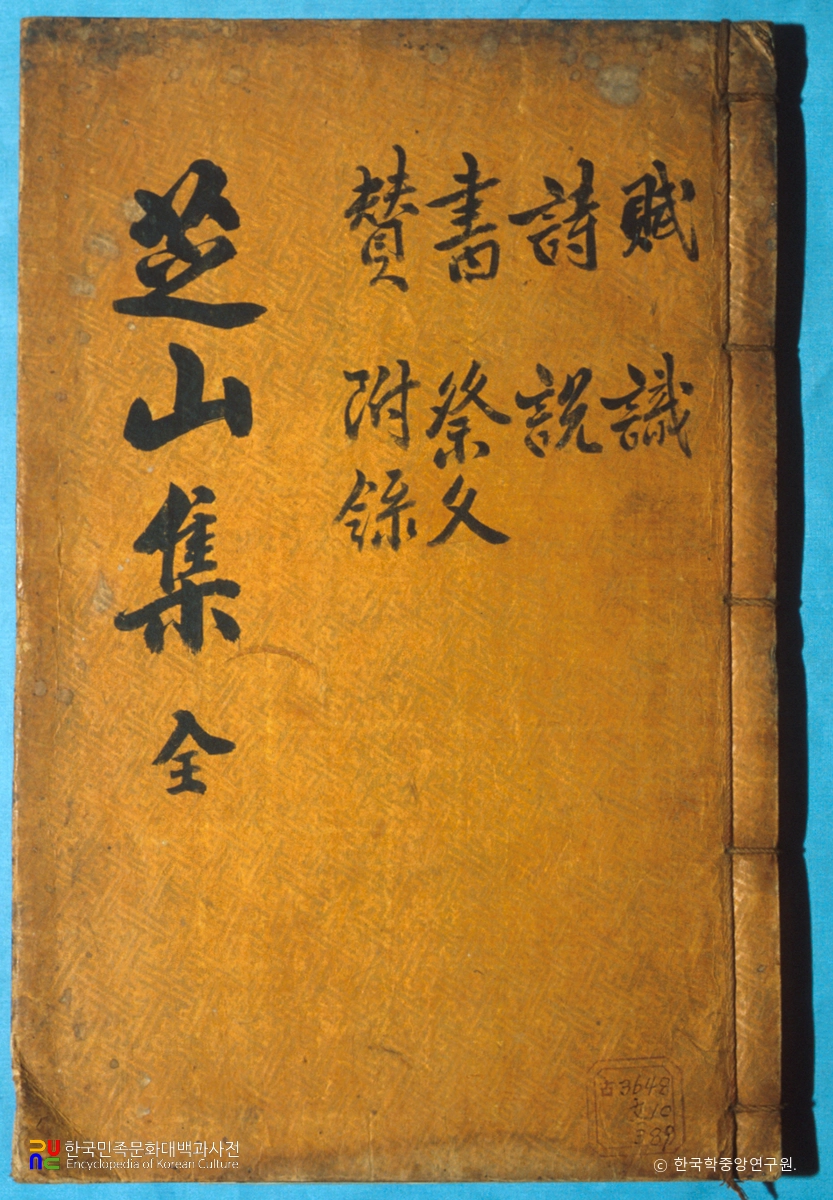 賦 識
詩 說
書 祭文
賛 附錄
芝山集 全
古3648
389
한국민족문화대백과사전
Encyclopedia of Korean Culture
© 한국학중앙연구원.